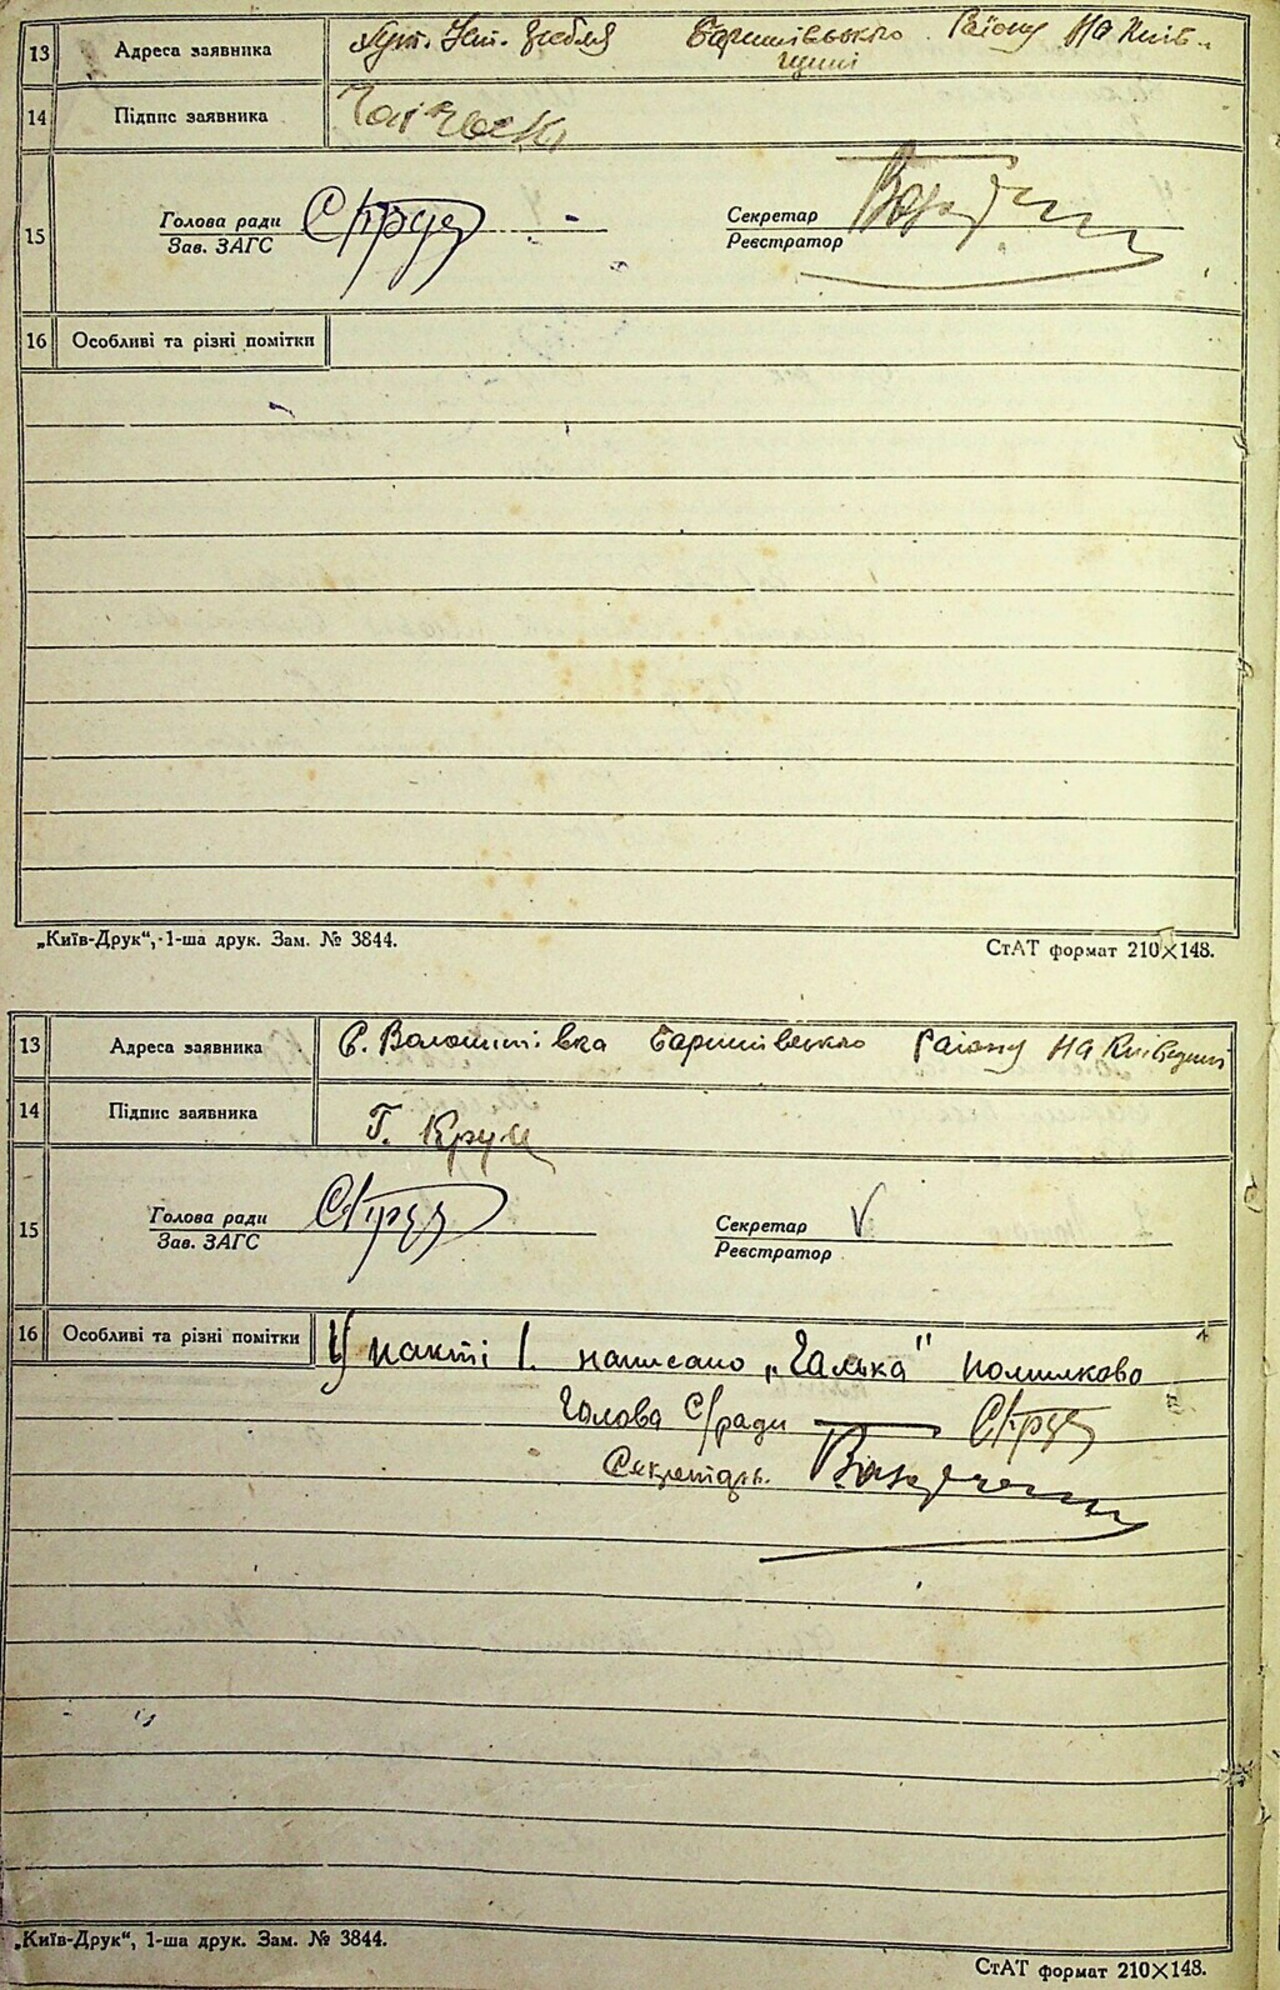 13 Адреса заявника Хут. Баришівського Району на Київ-
щині
14 Підпис заявника
15 Голова ради
Зав. ЗАГС
Секретар
Реєстратор
16 Особливі та різні помітки
„Київ-Друк“, 1-ша друк. Зам. № 3844.
СтАТ формат 210×148.
13 Адреса заявника С. Волошинівка Баришівського Району на Київщині
14 Підпис заявника Г.
15 Голова ради
Зав. ЗАГС
Секретар V
Реєстратор
16 Особливі та різні помітки У пакті 1. написано „Галька" помилково
Голова С/ради
Секретарь.
„Київ-Друк“, 1-ша друк. Зам. № 3844.
СтАТ формат 210×148.